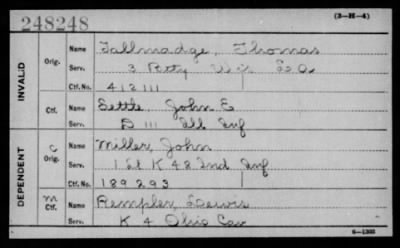 248248
(3-H-4)
INVALID
Orig. Name Tallmadge, Thomas
Serv. 3 Btty Wis L. A.
Ctf. No. 412111
Ctf. Name Settle, John E
Serv. D 111 Ill Inf
DEPENDENT
C Orig. Name Miller, John
Serv. 1st K 48 2nd Inf
Ctf. No. 189293
M Ctf. Name Rempler, Lewis
Serv. K 4 Ohio Cav